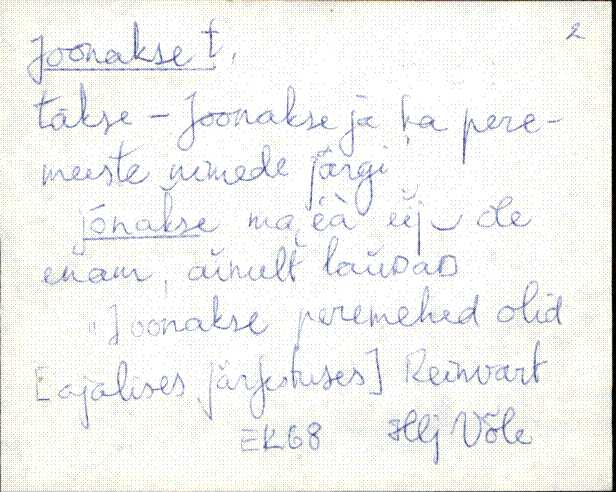 Joonakse t. 2
takse - Joonakse ja ka pere-
meeste nimede järgi
jõnakse ma ole
enam, ainult lauDaD
"Joonakse peremehed olid
[ajalises järjestuses] Reinvart
EK68 Hlj Võle